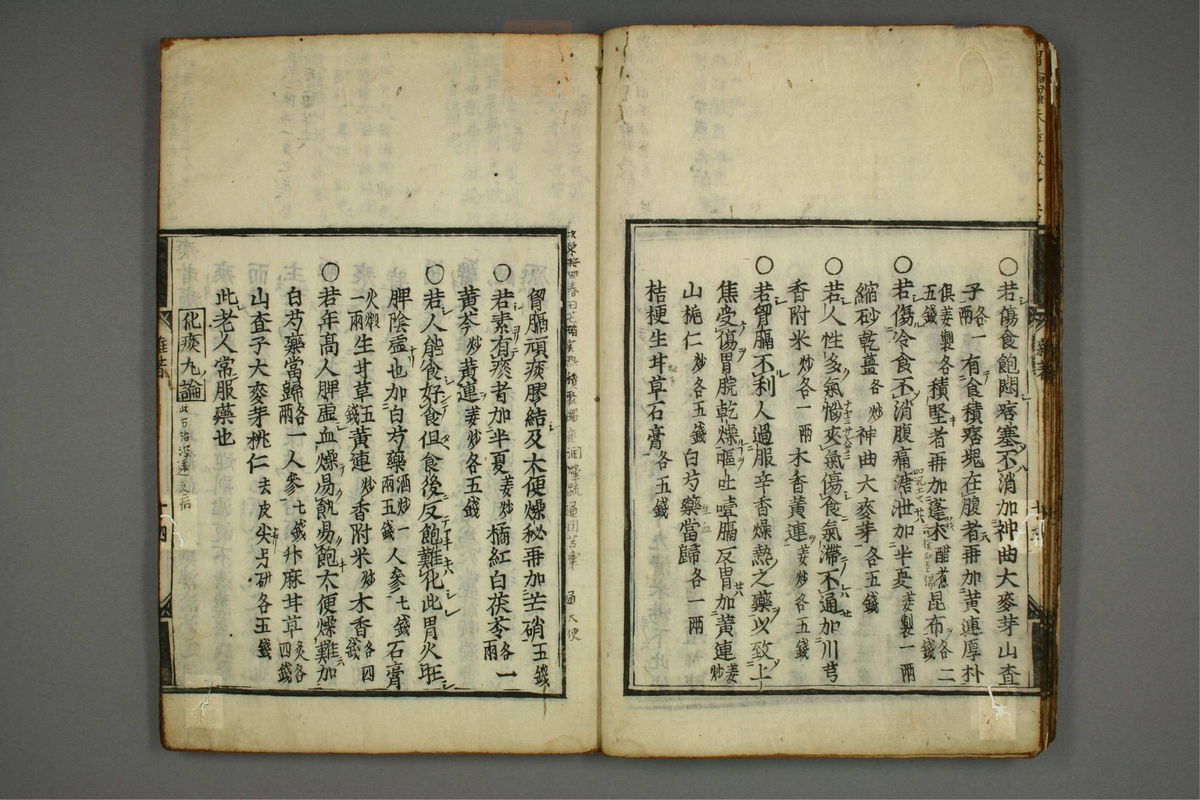 〇若傷食飽悶痞塞不消加神曲大麥芽山査
子各一兩有食積痞塊在腹者再加黄連厚朴
俱姜製各五錢積堅者再加蓬朮醋煮昆布各二錢
〇若傷冷食不消腹痛溏泄加半夏姜製一兩
縮砂乾薑各炒神曲大麥芽各五錢
〇若人性多氣惱夾氣傷食氣滯不通加川芎
香附米炒各一兩木香黄連姜炒各五錢
〇若胷膈不利人過服辛香燥熱之藥以致上
焦受傷胃脘乾燥嘔吐噎膈反胃加黄連姜炒
山梔仁炒各五錢白芍藥當歸各一兩
桔梗生甘草石膏各五錢
胷膈頑痰膠結及大便燥秘再加芒硝五錢
〇若素有痰者加半夏姜炒橘紅白茯苓各一兩
黄芩炒黄連姜炒各五錢
〇若人能食好食但食後反飽難化此胃火旺
脾陰虚也加白芍藥酒炒一兩五錢人參七錢石膏
火煅一兩生甘草五錢黄連炒香附米炒木香各四錢
〇若年高人脾虚血燥易飢易飽大便燥難加
白芍藥當歸各一兩人參七錢升麻甘草炙各四錢
山査子大麥芽桃仁去皮尖另研各五錢
此老人常服藥也
化痰丸論